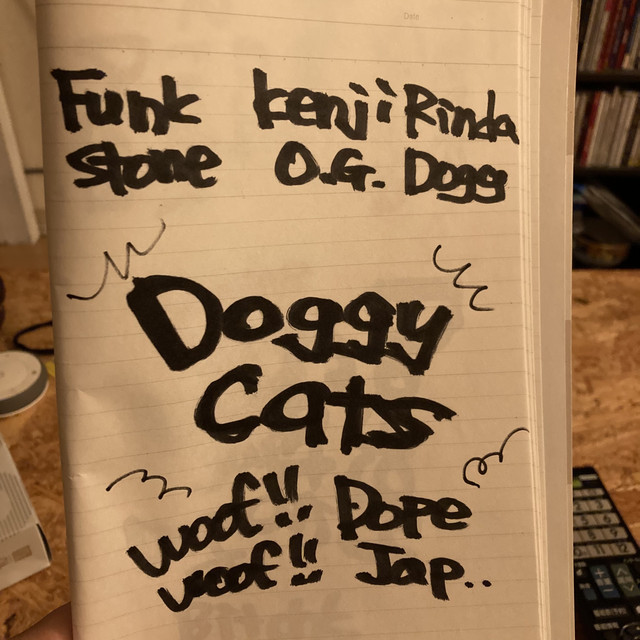 Funk kenji Rinda
Stone O.G. Dogg
Doggy
Cats
woof!! Dope
woof!! Jap..